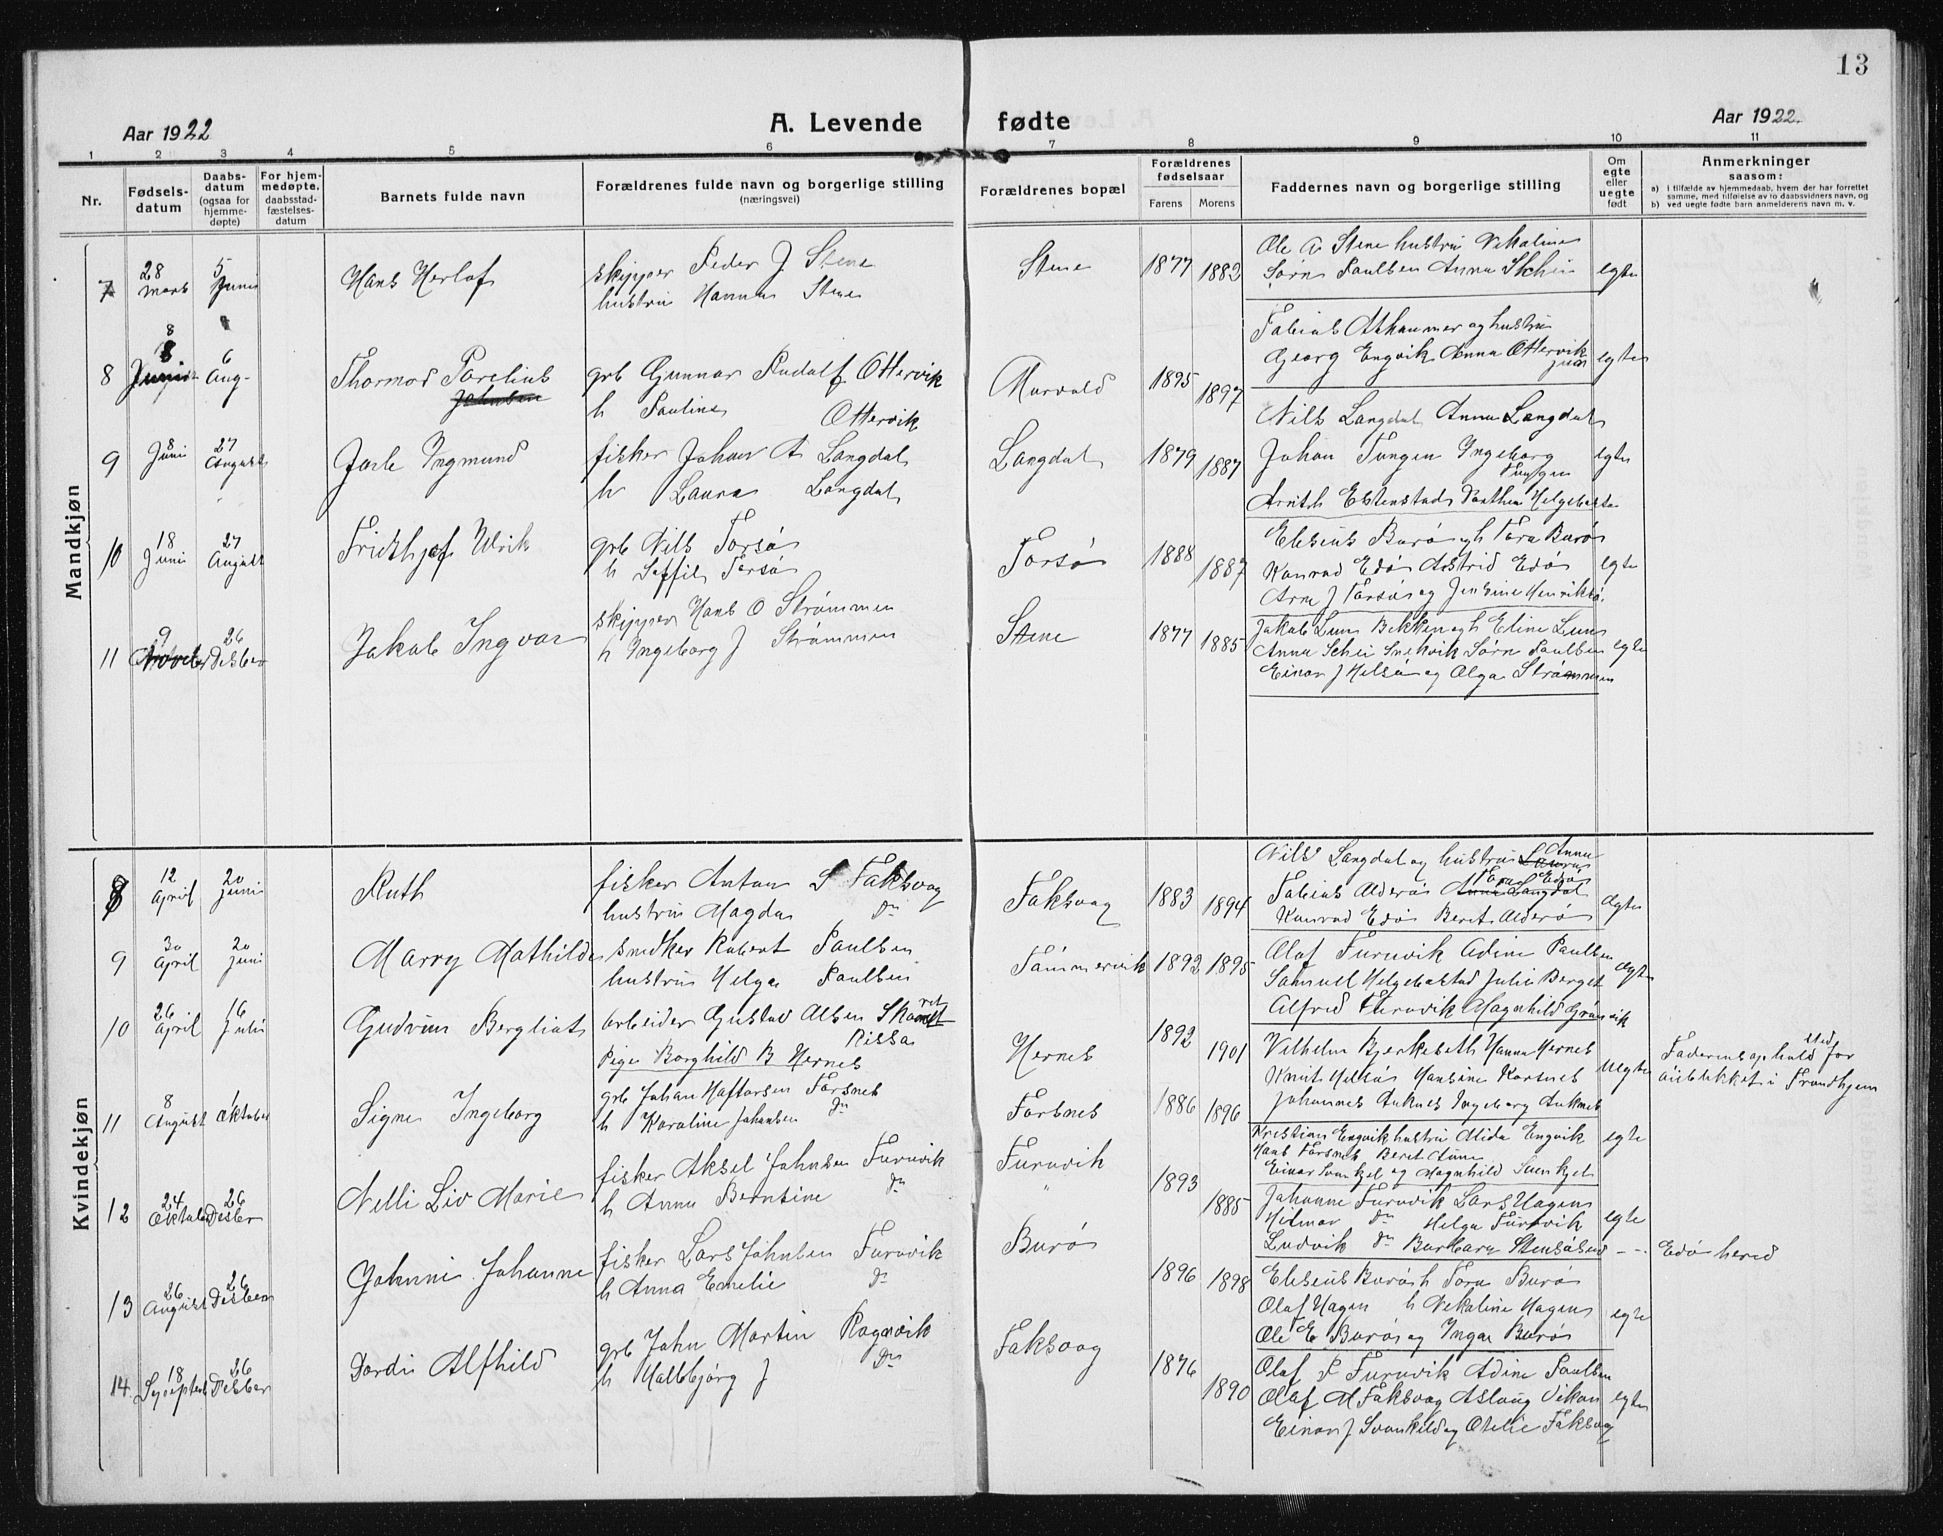 13
Aar 1922
A. Levende fødte
Aar 1922.
1 2 3 4 5 6 7 8 9 10 11
Nr.
Fødsels-
datum
Daabs-
datum
(ogsaa for
hjemme-
døpte)
For hjem-
medøpte,
daabsstad-
fæstelses-
datum
Barnets fulde navn
Forældrenes fulde navn og borgerlige stilling
(næringsvei)
Forældrenes bopæl
Forældrenes
fødselsaar
Farens Morens
Faddernes navn og borgerlige stilling
Om
egte
eller
uegte
født
Anmerkninger
saasom:
a) i tilfælde av hjemmedaab, hvem der har forrettet
samme, med tilføielse av to daabsvidners navn, og
b) ved uegte fødte barn anmelderens navn m. v.
Mandkjøn
7 28 mars 5 Juni Hans Herlof
skipper Peder J Stene
hustru Hanna Stene
Stene 1877 1882
Ole A Stene hustru Nekoline
Sørn Paulsen Anna Schei
egte
8 8 Juni 6 Aug- Thormod Parelius
Johnsen
grb Gunnar Rudolf Ottervik
h Pauline Ottervik
Morvald 1895 1897
Tobias Athammer og hustru
Georg Engvik Anna Ottervik
egte
9 8 Juni 27 August Jarle Ingmund
fisker Johan A Langdal
h Laura Langdal
Langdal 1879 1887
Nils Langdal Anna Langdal
Johan Tungen Ingeborg
Tungen
Arnth Estenstad Dorthea Helgebostad
egte
10 18 Juni 27 August Fridthjof Ulrik
grb Nils Torsø
h Torsø
Torsø 1888 1887
Elesius Burø og h Tora Burø
Konrad Edø Astrid Edø
Arne J Torsø og Jensine Henriksø.
egte
11 9 Novbr 26 Desber Jakob Ingvar
skipper Hans O Strømmen
h Ingeborg J Strømmen
Stene 1877 1885
Jakob Lun Bekken og h Eline Lun
Anna Schei Snekvik Sørn Paulsen
Einar J Helsø og Olga Strømmen
egte
Kvindekjøn
8 12 April 20 juni Ruth
fisker Anton S Faksvag
hustru Magda do
Faksvag 1883 1894
Nils Langdal og hustru Laura Anna
Tobias Alderø Anna Langdal Tora Edø
Konrad Edø Beret Alderø
egte
9 30 April 20 juni Marry Mathilde
snedker Robert Paulsen
hustru Helga Paulsen
Tømmervik 1892 1895
Olaf Furuvik Adine Paulsen
Samuel Helgebostad Julie Berget
Alfred Furuvik Magnhild Grønvik
egte
10 26 April 16 Juli Gudrun Bergliot
Arbeider Gustav Olsen
Rissa
Pige Borghild B Hernes
Hernes 1892 1901
Vilhelm Bjerkeseth Hanna Hernes
Knut Helsø Hansine Korsnes
Johannes Auknes Ingeborg Auknes
uegte
Faderens opholdsted for
øieblikket i Trondhjem
11 8 August Oktober Signe Ingeborg
grb Johan Haftorsen Forsnes
h Karoline Johansen do
Forsnes 1886 1896
Kristian Engvik hustru Alida Engvik
Hans Forsnes Beret Aune
Einar Svankjel og Magnhild Svankjel
egte
12 24 Oktober 26 Desbr Nelli Liv Marie
fisker Aksel Johnsen Furuvik
h Anna Bernsine do
Furuvik 1893 1885
Johanne Furuvik Lars Hagen
Hilmar do Helga Furuvik
Ludvik do Barbara Stensøsund
egte
13 26 August 26 Desber Johnni Johanne
fisker Lars Johnsen Furuvik
h Anna Emelie do
Burø 1896 1898
Elesius Burø h Tora Burø
Olaf Hagen h Nekoline Hagen
Ole E Burø og Inga Burø
egte
Edø hered
14. 18 26 Desber Dordi Alfhild
grb John Martin Rognvik
h Hallbjørg J do
Faksvag 1876 1890
Olaf P Furuvik Adine Paulsen
Olaf M Faksvag Aslaug Vikan
Einar J Svankild og Otelie Faksvag
egte